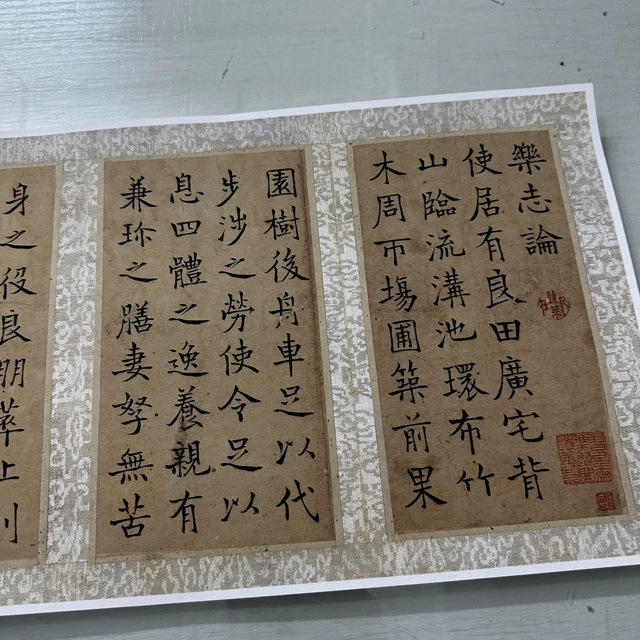 樂志論
使居有良田廣宅背
山臨流溝池環布竹
木周帀場圃築前果
園樹後舟車足以代
步涉之勞使令足以
息四體之逸養親有
兼珍之膳妻孥無苦
身之役良朋萃止